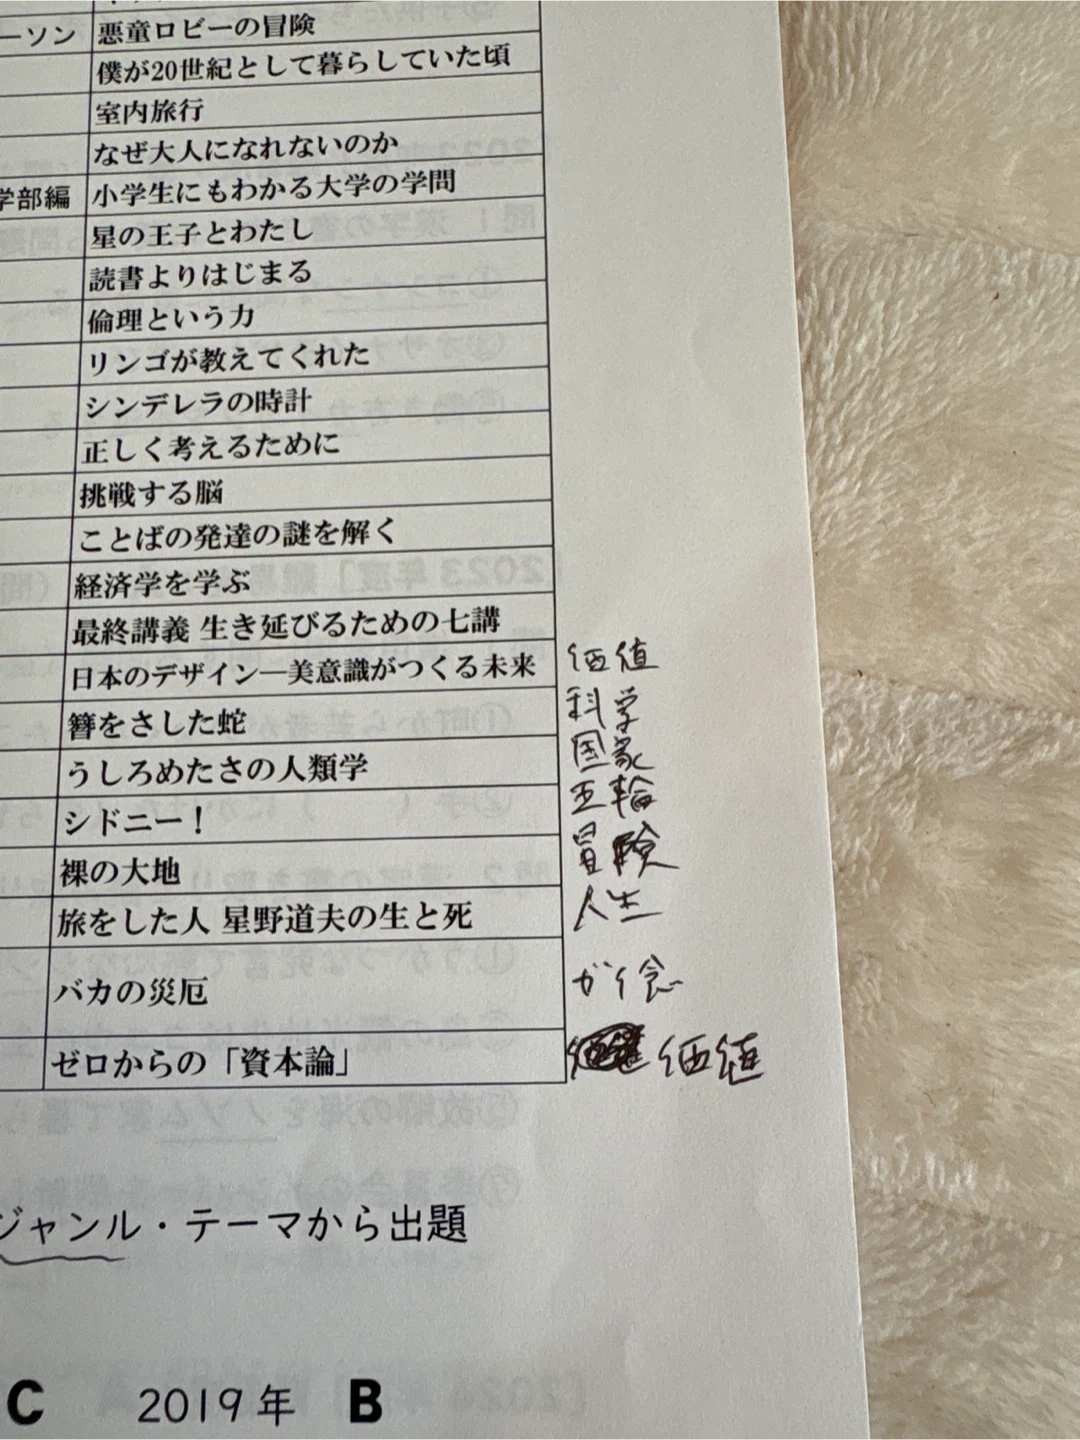 ーソン 悪童ロビーの冒険
僕が20世紀として暮らしていた頃
室内旅行
なぜ大人になれないのか
学部編 小学生にもわかる大学の学問
星の王子とわたし
読書よりはじまる
倫理という力
リンゴが教えてくれた
シンデレラの時計
正しく考えるために
挑戦する脳
ことばの発達の謎を解く
経済学を学ぶ
最終講義 生き延びるための七講
日本のデザイン―美意識がつくる未来 価値
簪をさした蛇 科学
うしろめたさの人類学 国家
シドニー! 五輪
裸の大地 冒険
旅をした人 星野道夫の生と死 人生
バカの災厄 ガイ念
ゼロからの「資本論」 価値
ジャンル・テーマから出題
C 2019年 B